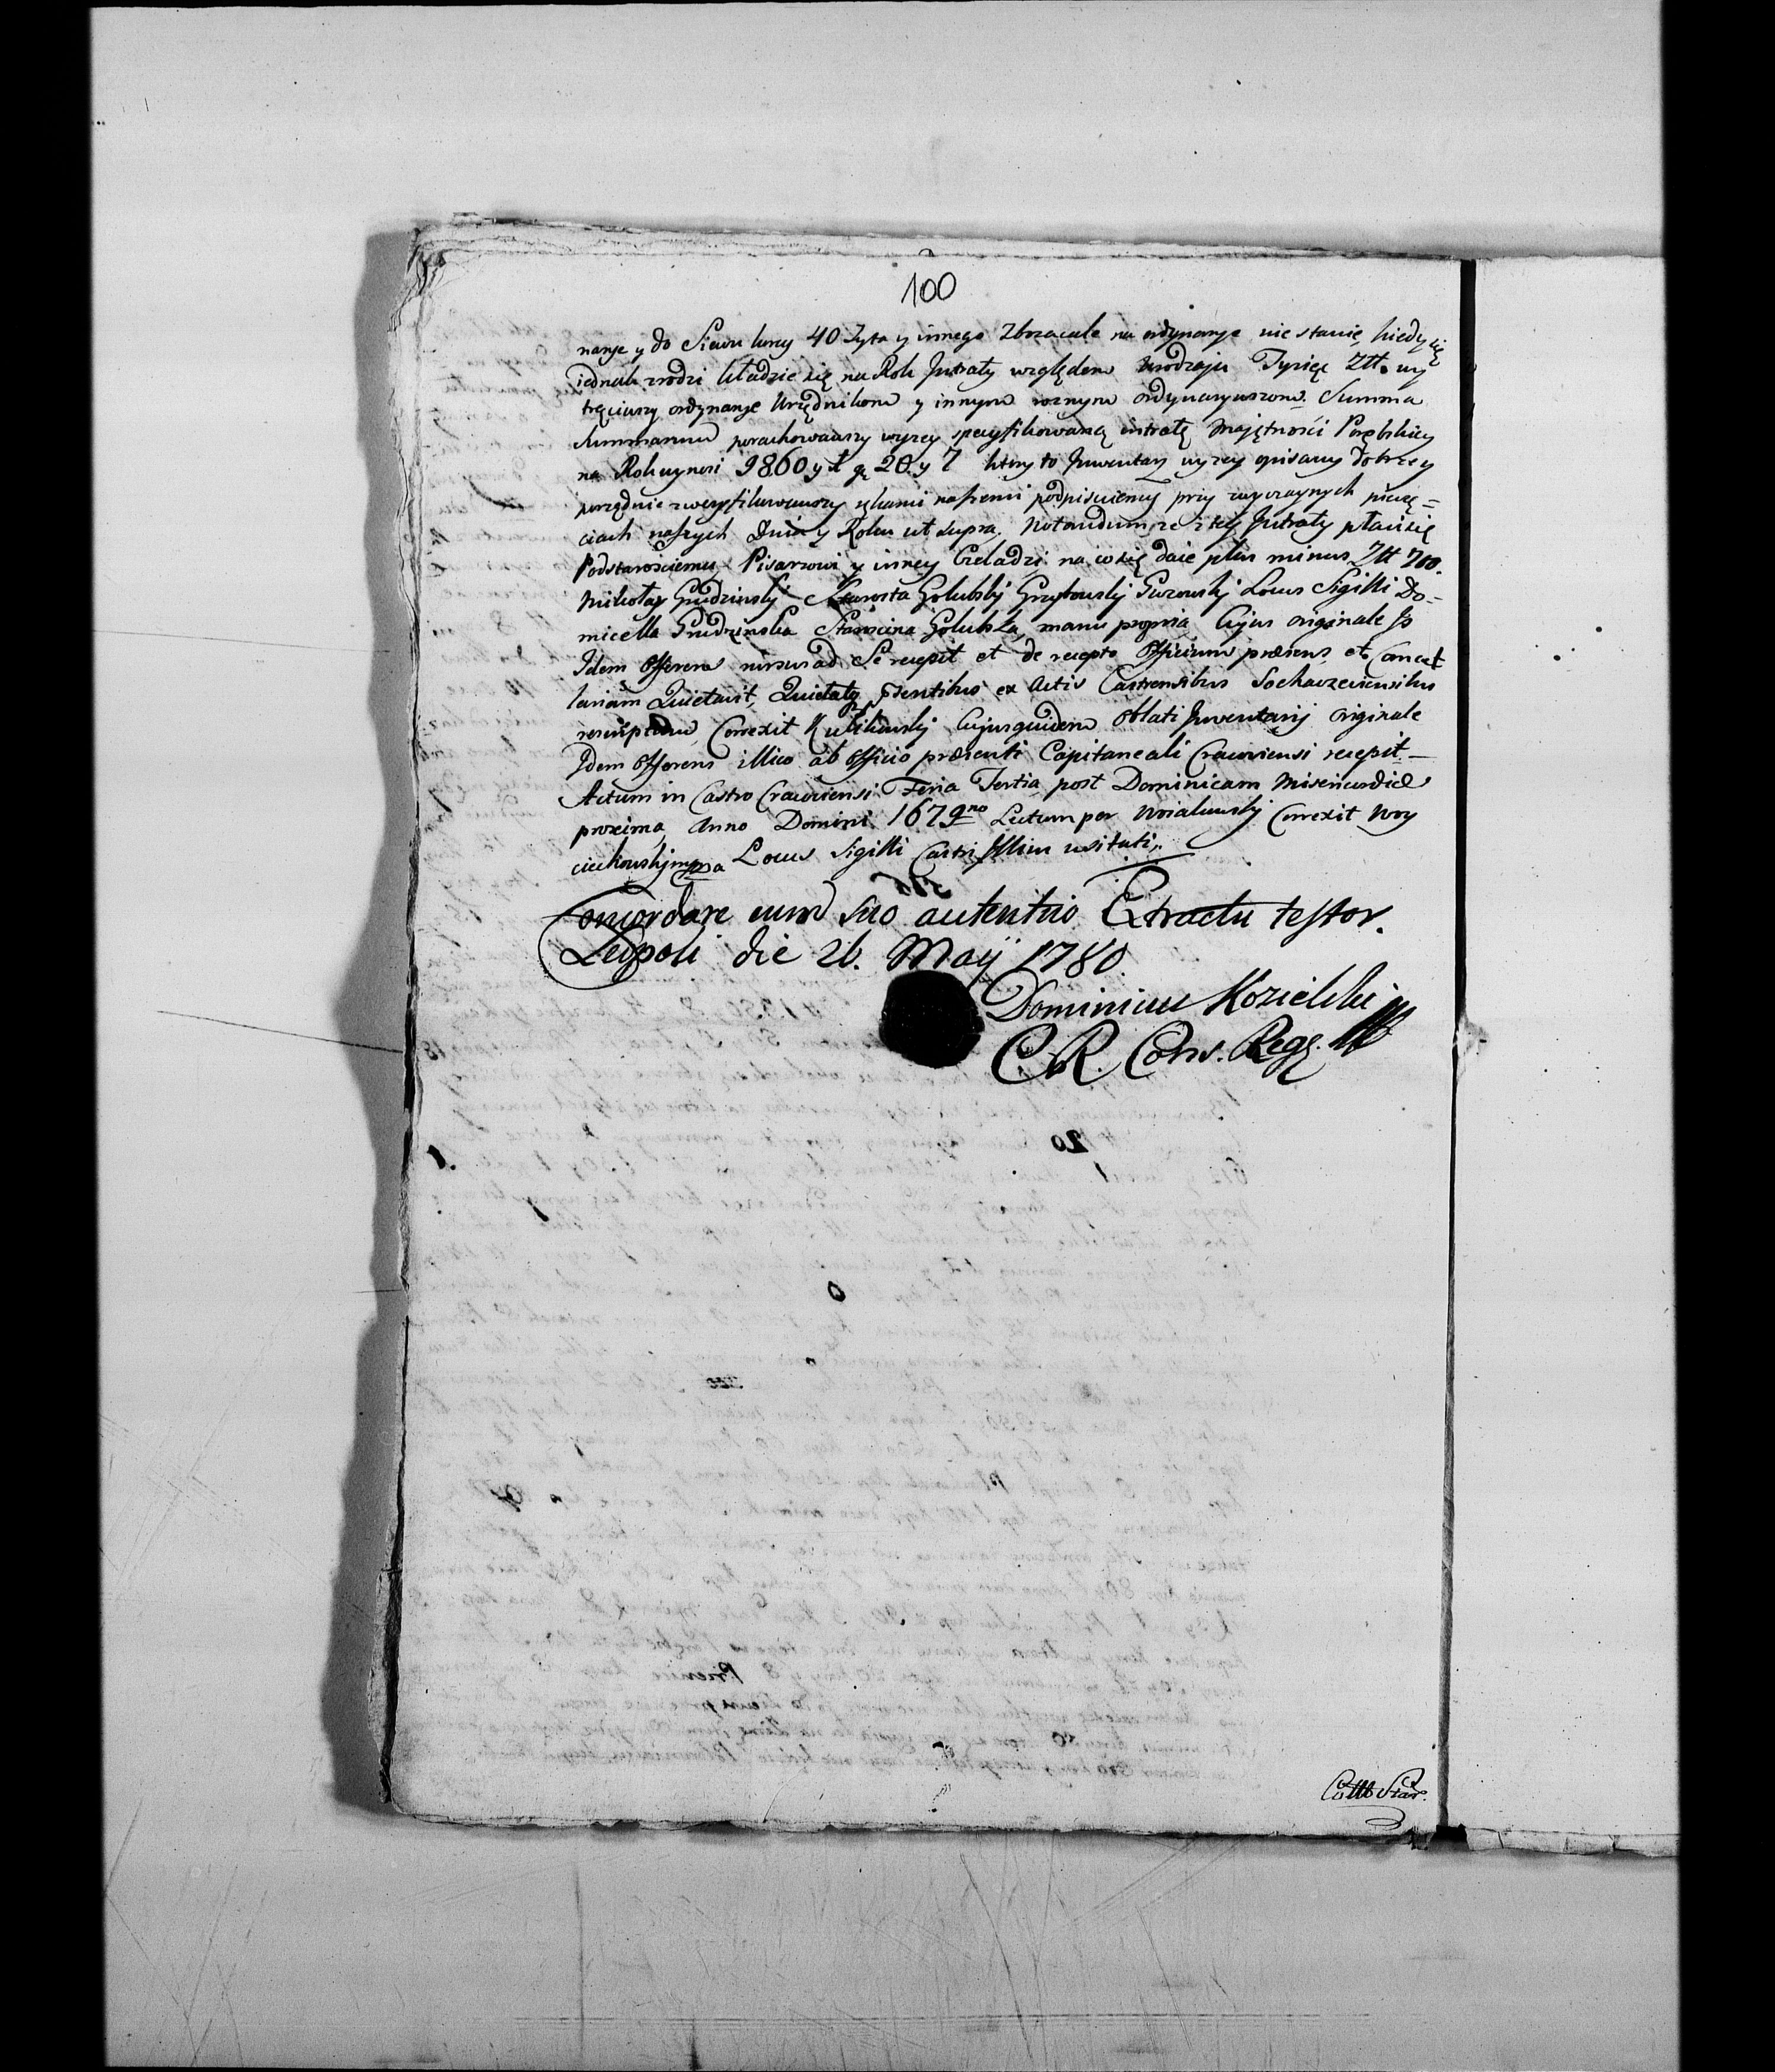 100
nanye y do Siewu kory 40 Żyta y innego Zboża ale na ordynarye nie stanie, kiedy się
iednak zrodzi kładzie się na Rok Jntraty względem Urodzaju Tysięc Złł. wy
trąciwszy ordynarye Urzędnikom y innym roznym ordynaryuszom. Summa
Summarum porachowawszy wyzey specyfikowaną intratę Majętności Porębskiey
na Rok wynosi 9860 y ł gr 20. y 7 ktory to Jnwentarz wyzey opisany dobrze y
porządnie zweryfikowawszy rękami naszemi podpisuiemy przy zwyczaynych pieczę=
ciach naszych Dnia y Roku ut supra. Notandum ze z tey Jntraty płaci się
Podstarościemu Pisarzowi y inney Czeladzi na co się daie plus minus Złł 700.
Mikołay Grudzinsky Starosta Golubsky Grzybowsky Guzowsky Locus Sigilli Do=
micella Grudzinska Starościna Golubska, manu propria Cujus originale
Jdem Offerens rursus ad Se recepit et de recepto Officium præsens et Cancel
lariam Quietavit, Quietatq psentibus ex Actis Castrensibus Sochaczeviensibus
rescriptum Correxit Kulikowsky Cujusquidem Oblati Jnventarij Originale
Jdem Offerens illico ab Officio præsenti Capitaneali Cracoviensi recepit —
Actum in Castro Cracoviensi Feria Tertia post Dominicam Misericordiæ
proxima, Anno Domini 1679no Lectum per Correxit Woy
ciechowsky mpa Locus Sigilli Castri Illius usitati,.
Concordare cum suo autentico Extractu testor.
Leopoli die 26. Maÿ 1780.
Dominicus Kozielski mp
C. R. Cons. Regg.